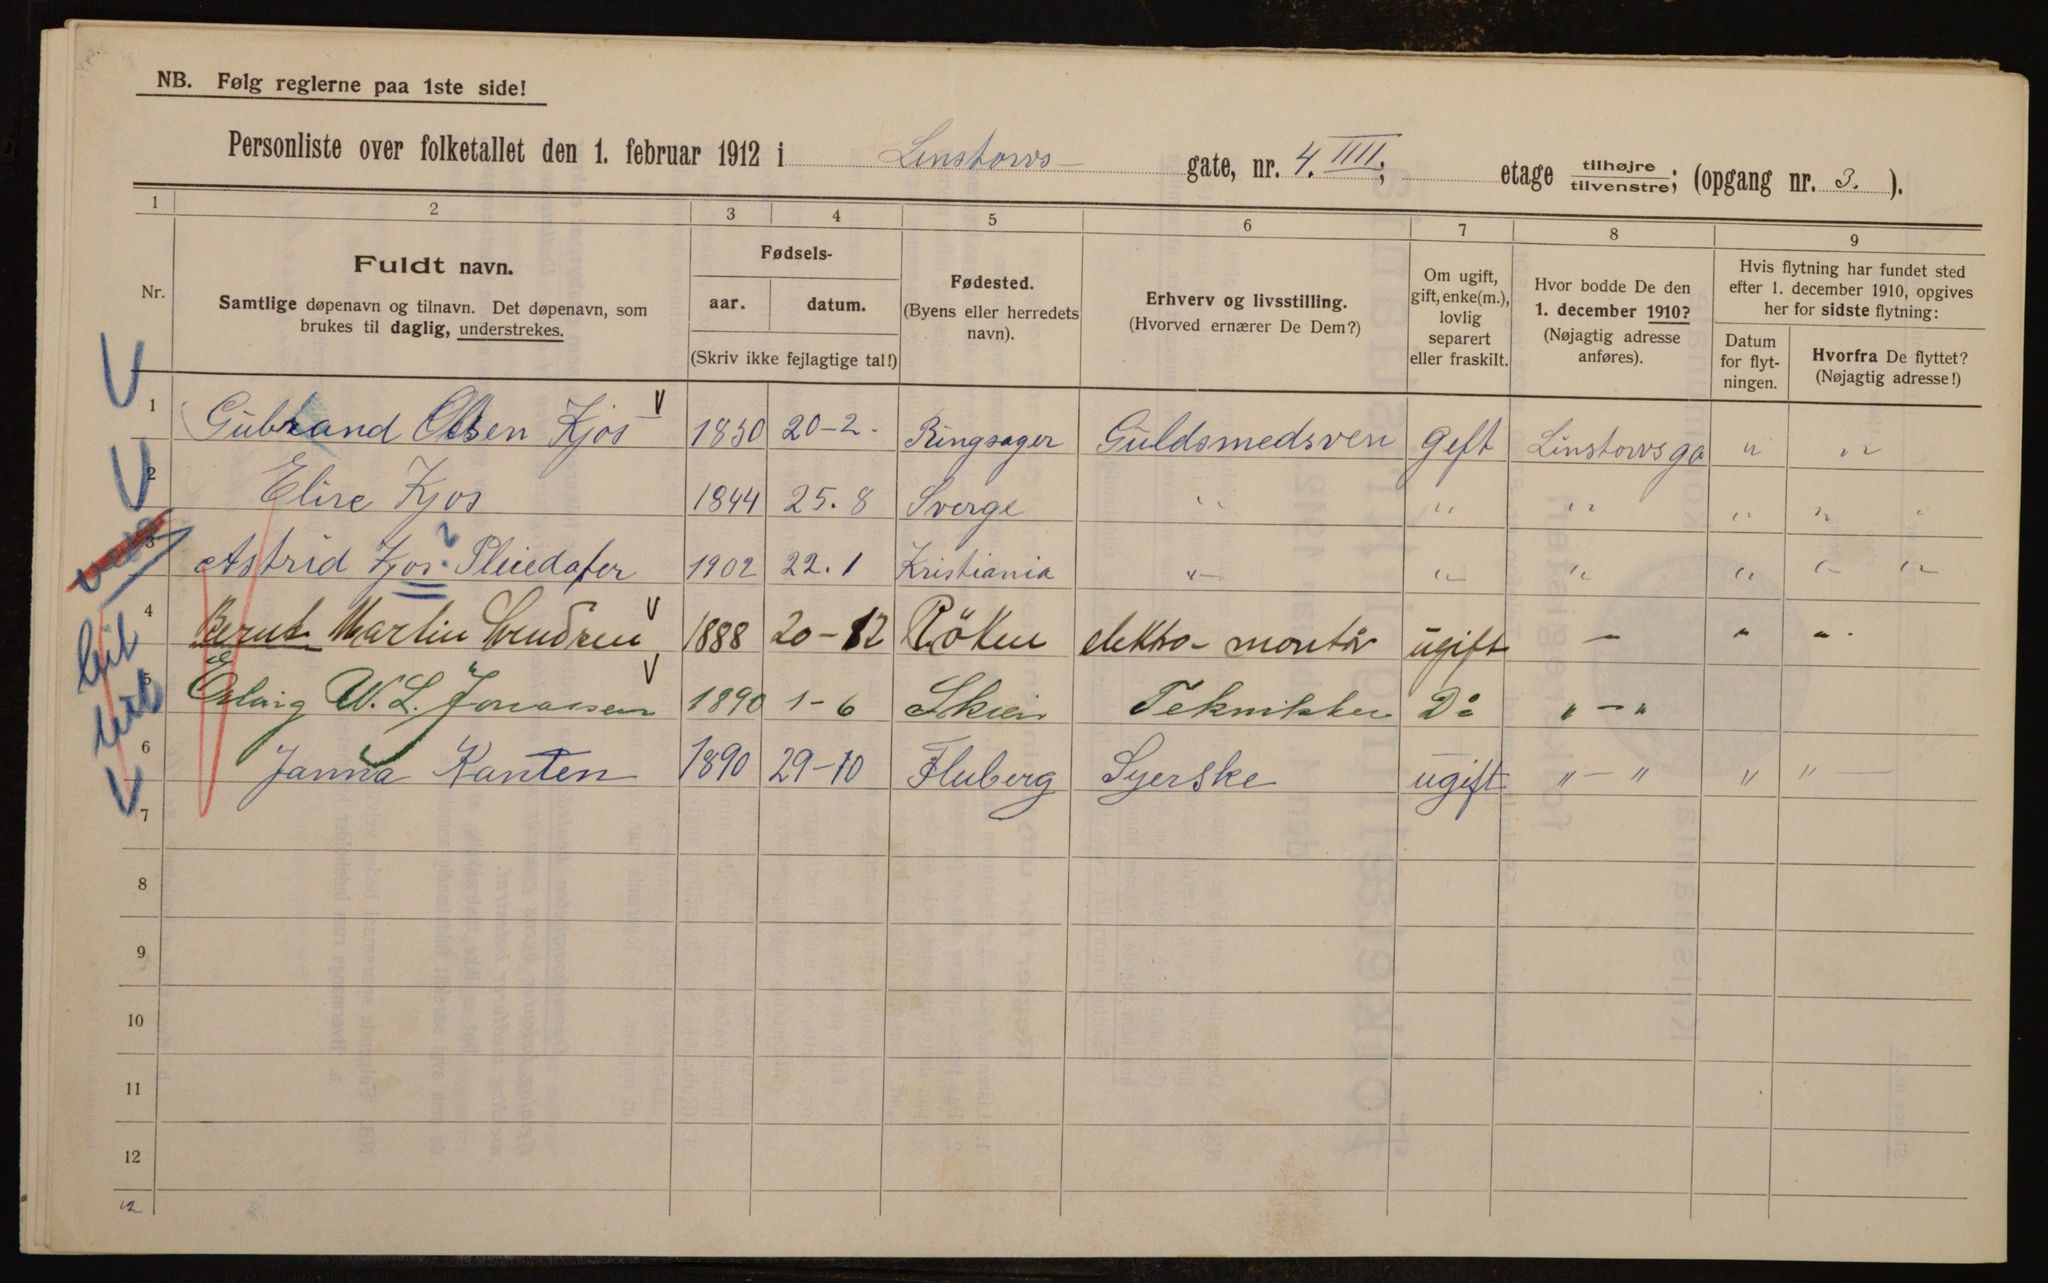 NB. Følg reglerne paa 1ste side!
Personliste over folketallet den 1. februar 1912 i Linstows- gate, nr. 4. IIII; etage tilhøjre/tilvenstre; (opgang nr. 3. ).
1 2 3 4 5 6 7 8 9
Nr. Fuldt navn. Samtlige døpenavn og tilnavn. Det døpenavn, som brukes til daglig, understrekes.
Fødsels- aar. datum. (Skriv ikke fejlagtige tal!)
Fødested. (Byens eller herredets navn).
Erhverv og livsstilling. (Hvorved ernærer De Dem?)
Om ugift, gift, enke(m.), lovlig separert eller fraskilt.
Hvor bodde De den 1. december 1910? (Nøjagtig adresse anføres).
Hvis flytning har fundet sted efter 1. december 1910, opgives her for sidste flytning:
Datum for flyt-ningen. Hvorfra De flyttet? (Nøjagtig adresse!)
1 Gubrand Olsen Kjos 1850 20-2- Ringsager Guldsmedsven Gift Linstowsga " "
2 Elise Kjos 1844 25.8 Sverge " " " " "
3 Astrid Kjos? Pleiedater 1902 22.1 Kristiania " " " " " "
4 Bernt Martin 1888 20-12 Röken elektro-montør ugift — " "
5 Erling W. L. Jonassen 1890 1-6 Skien Tekniker Do " — "
6 Janna Kanten 1890 29-10 Fluberg Syerske ugift " — " " "
7
8
9
10
11
12
12